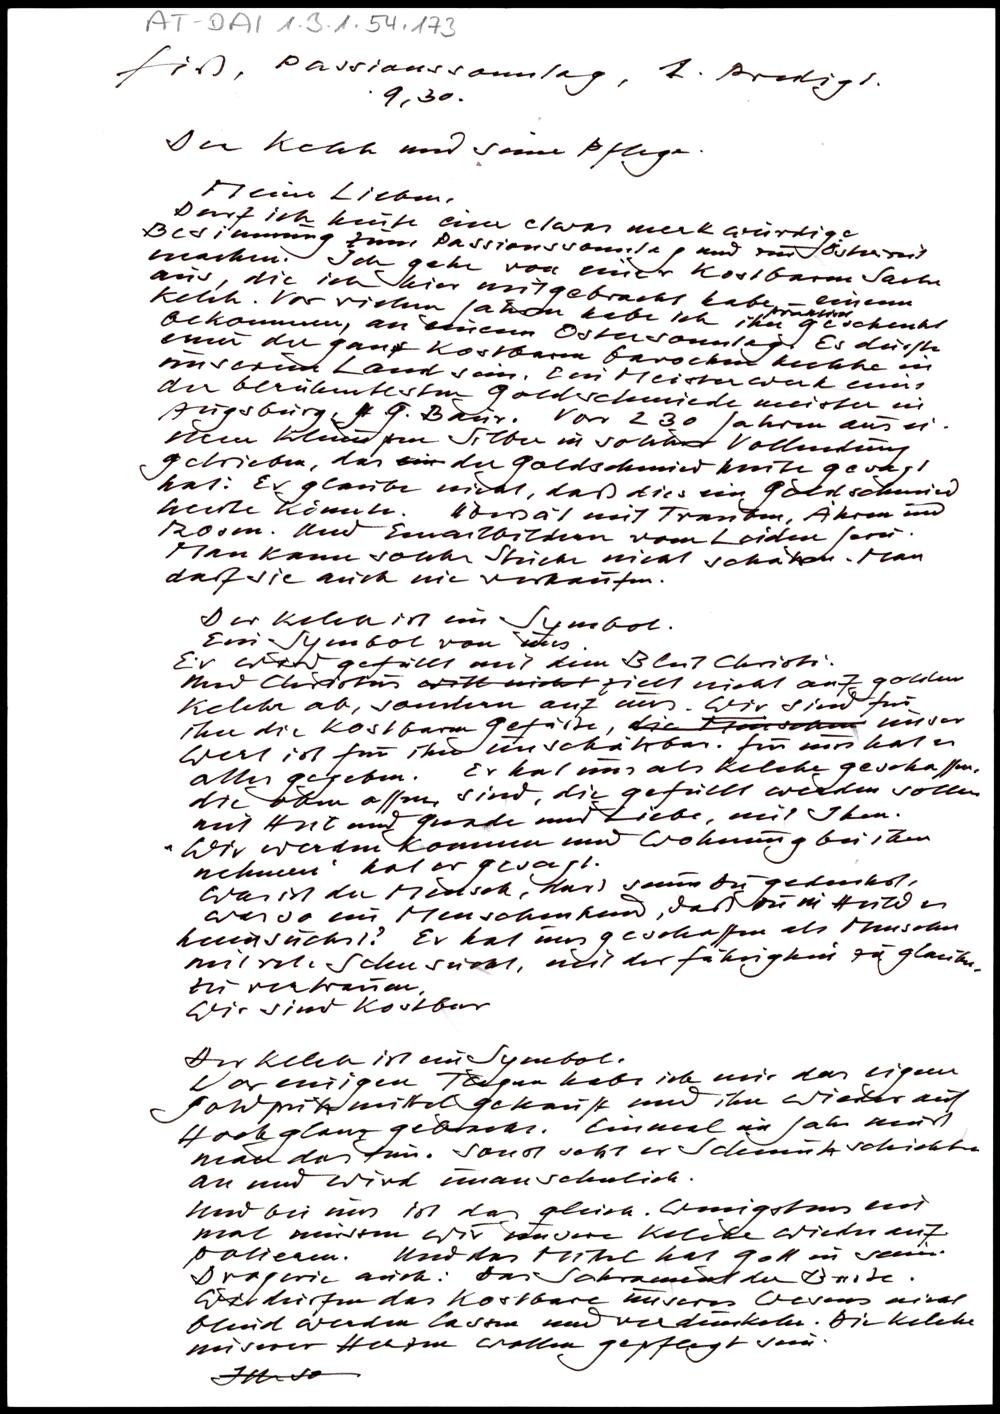 AT-DAI 1.3.1.54.173
Fiß, Passionssonntag, 1. Predigt.
9,30.
Der Kelch und seine Pflege.
Meine Lieben,
Darf ich heute eine etwas merkwürdige
Besinnung zum Passionssonntag und zur Osterzeit
machen. Ich gehe von einer kostbaren Sache
aus, die ich hier mitgebracht habe, einem
Kelch. Vor vielen Jahren habe ich ihn geschenkt
bekommen, an einem Ostersonntag. Es dürfte
einer der ganz kostbaren barocken Kelche in
unserem Land sein. Ein Meisterwerk eines
der berühmtesten Goldschmiedemeister in
Augsburg, G. Baur. Vor 230 Jahren aus ei-
nem Klumpen Silber in solcher Vollendung
getrieben, das ein der Goldschmied heute gesagt
hat: Er glaube nicht, daß dies ein Goldschmied
heute könnte. Übersät mit Trauben, Ähren und
Rosen. Und Emailbildern vom Leiden Jesu.
Man kann solche Stücke nicht schätzen. Man
darf sie auch nie verkaufen.
Der Kelch ist ein Symbol.
Ein Symbol von uns.
Er wird gefüllt mit dem Blut Christi.
Und Christus will nicht zielt nicht auf golden
Kelche ab, sondern auf uns. Wir sind für
ihn die kostbaren Gefäße, die Menschen unser
Wert ist für ihn unschätzbar. Für uns hat er
alles gegeben. Er hat uns als Kelche geschaffen,
die oben offen sind, die gefüllt werden sollen
mit Heil und Gnade und Liebe, mit Ihm.
"Wir werden kommen und Wohnung bei ihm
nehmen" hat er gesagt.
Was ist der Mensch, daß seiner du gedenkst,
was so ein Menschenkind, daß du in Huld es
heimsuchst? Er hat uns geschaffen als Menschen
mit Sehnsucht, mit der Fähigkeit zu glauben,
zu vertrauen.
Wir sind kostbar
Der Kelch ist ein Symbol.
Vor einigen Tagen habe ich mir das eigene
Goldputzmittel gekauft und ihn wieder auf
Hochglanz gebracht. Einmal im Jahr muß
man das tun. Sonst setzt er Schmutzschichten
an und wird unansehnlich.
Und bei uns ist das gleich. Wenigstens ein
mal müssen wir unsere Kelche wieder auf
polieren. Und das Mittel hat Gott in seiner
Drogerie auch: Das Sakrament der Buße.
Wir dürfen das Kostbare unseres Wesens nicht
blind werden lassen und verdunkeln. Die Kelche
unserer Herzen wollen gepflegt sein.